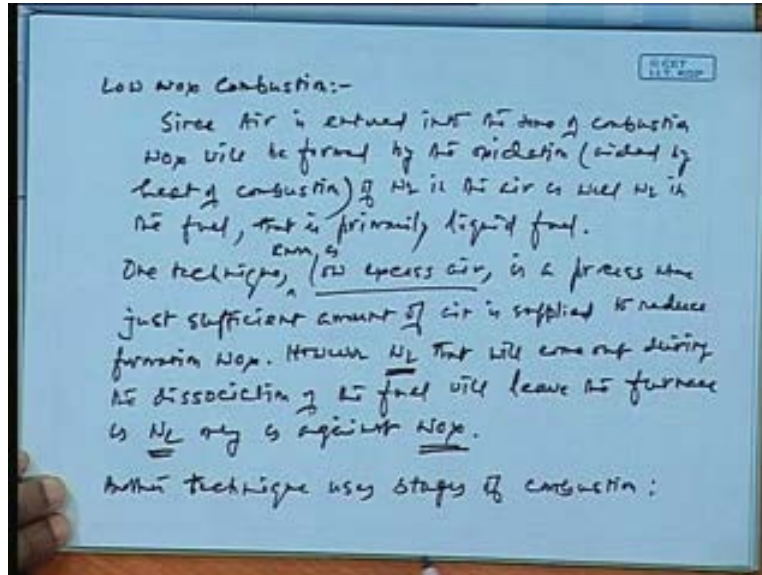 Low NOx Combustion:-
© CET
I.I.T. KGP
Since Air is entered into the zone of combustion
NOx will be formed by the oxidation (aided by
heat of combustion) of N2 in the air as well N2 in
the fuel, that is primarily liquid fuel.
One technique, known as low excess air, is a process where
just sufficient amount of air is supplied to reduce
formation NOx. However N2 that will come out during
the dissociation of the fuel will leave the furnace
as N2 only as against NOx.
Another technique uses stages of combustion: